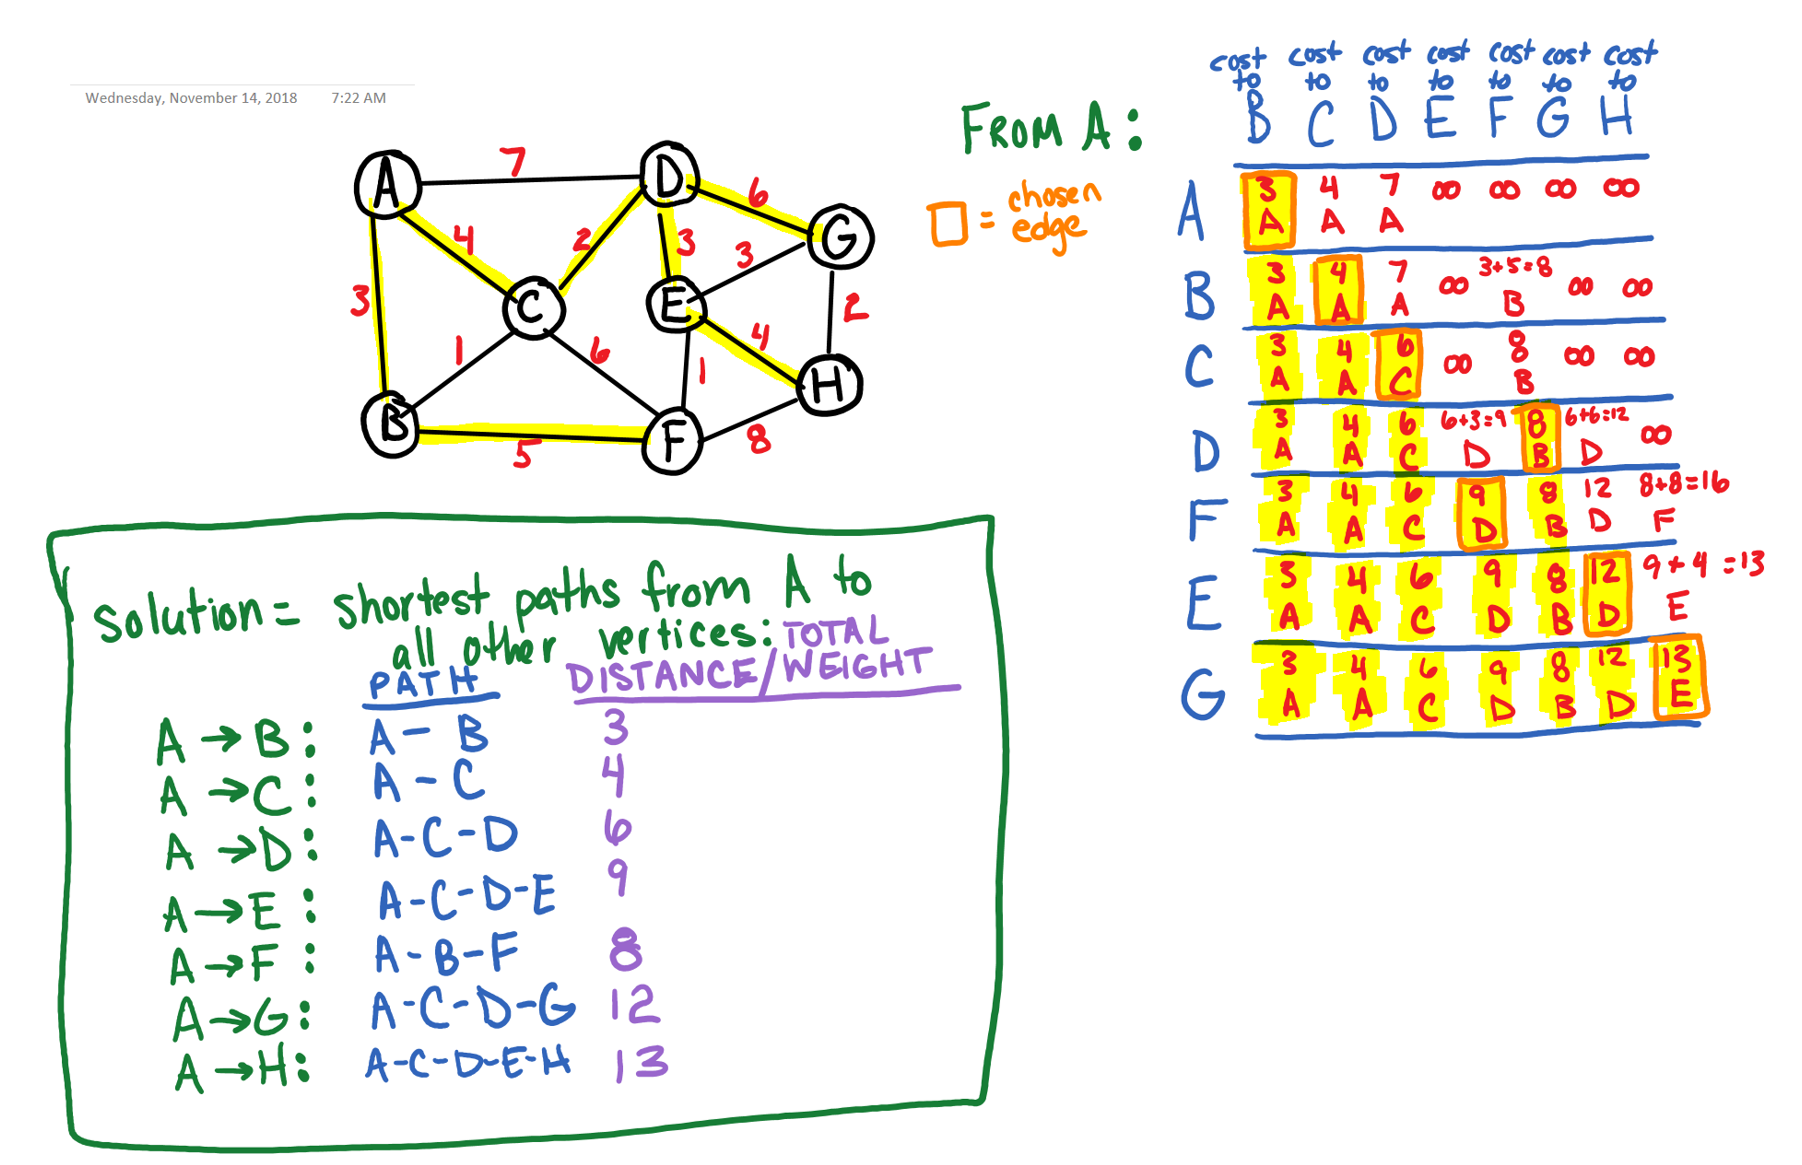 Wednesday, November 14, 2018 7:22 AM
A
7
D
6
G
4
2
3
3
3
C
E
2
1
6
4
1
H
B
5
F
8
FROM A:
= chosen edge
cost to B cost to C cost to D cost to E cost to F cost to G cost to H
A 3 A 4 A 7 A ∞ ∞ ∞ ∞
B 3 A 4 A 7 A ∞ 3+5=8 B ∞ ∞
C 3 A 4 A 6 C ∞ 8 B ∞ ∞
D 3 A 4 A 6 C 6+3=9 D 8 B 6+6=12 D ∞
F 3 A 4 A 6 C 9 D 8 B 12 D 8+8=16 F
E 3 A 4 A 6 C 9 D 8 B 12 D 9+4=13 E
G 3 A 4 A 6 C 9 D 8 B 12 D 13 E
Solution = shortest paths from A to
all other vertices: TOTAL
PATH DISTANCE/WEIGHT
A→B: A-B 3
A→C: A-C 4
A→D: A-C-D 6
A→E: A-C-D-E 9
A→F: A-B-F 8
A→G: A-C-D-G 12
A→H: A-C-D-E-H 13